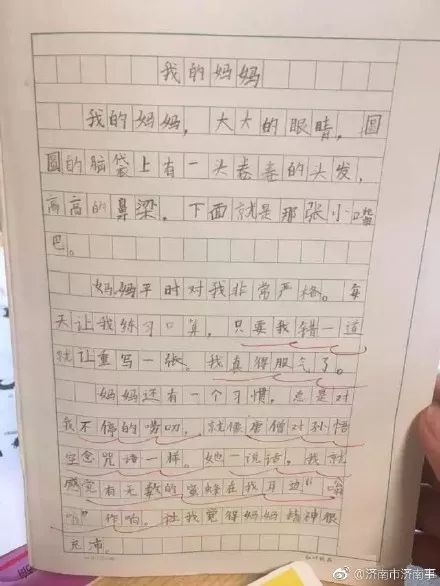 我的妈妈
我的妈妈，大大的眼睛，圆
圆的脑袋上有一头的头发，
高高的鼻梁，下面就是那张小嘴
巴。
妈妈平时对我非常严格。每
天让我练习口算，只要我错一道
就让重写一张。我真得服气了。
妈妈还有一个习惯，总是对
我不停的唠叨，就像唐僧对孙悟
空念咒语一样。她一说话，我就
感觉有无数的蜜蜂在我耳边“嗡
嗡”作响。让我觉得妈妈精神很
充沛。
@济南市济南事